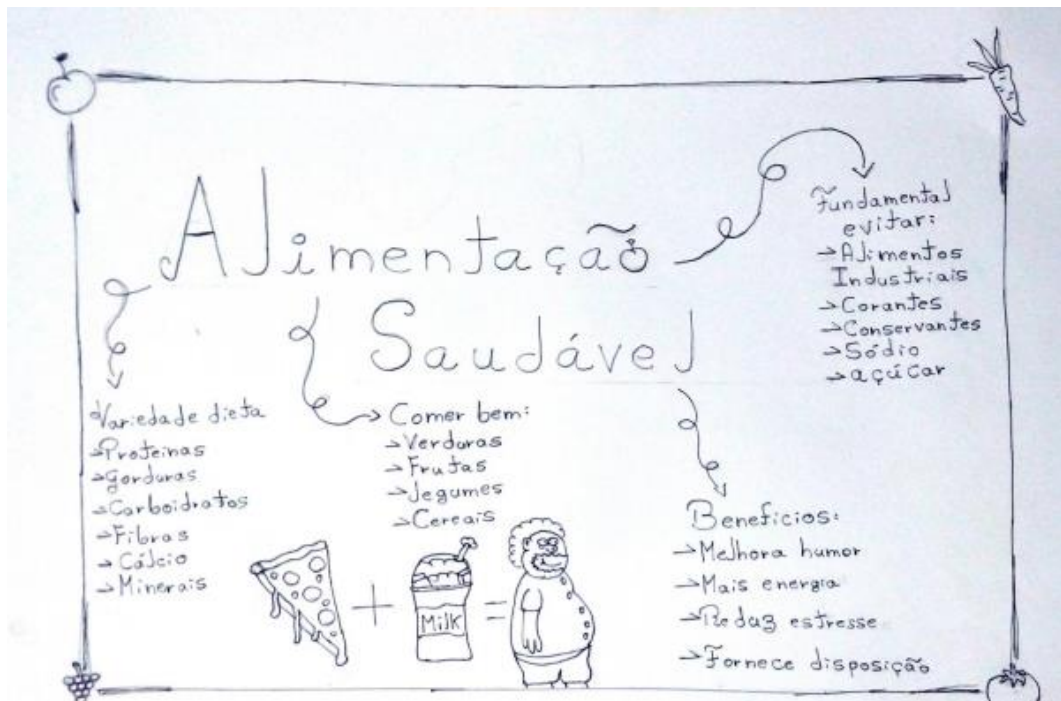 Alimentação
Saudável
Fundamental
evitar:
→Alimentos
Industriais
→Corantes
→Conservantes
→Sódio
→açúcar
Variedade dieta
→Proteinas
→gorduras
→Carboidratos
→Fibras
→Cálcio
→Minerais
→Comer bem:
→Verduras
→Frutas
→legumes
→Cereais
Beneficios:
→Melhora humor
→Mais energia
→Reduz estresse
→Fornece disposição
+
Milk
=